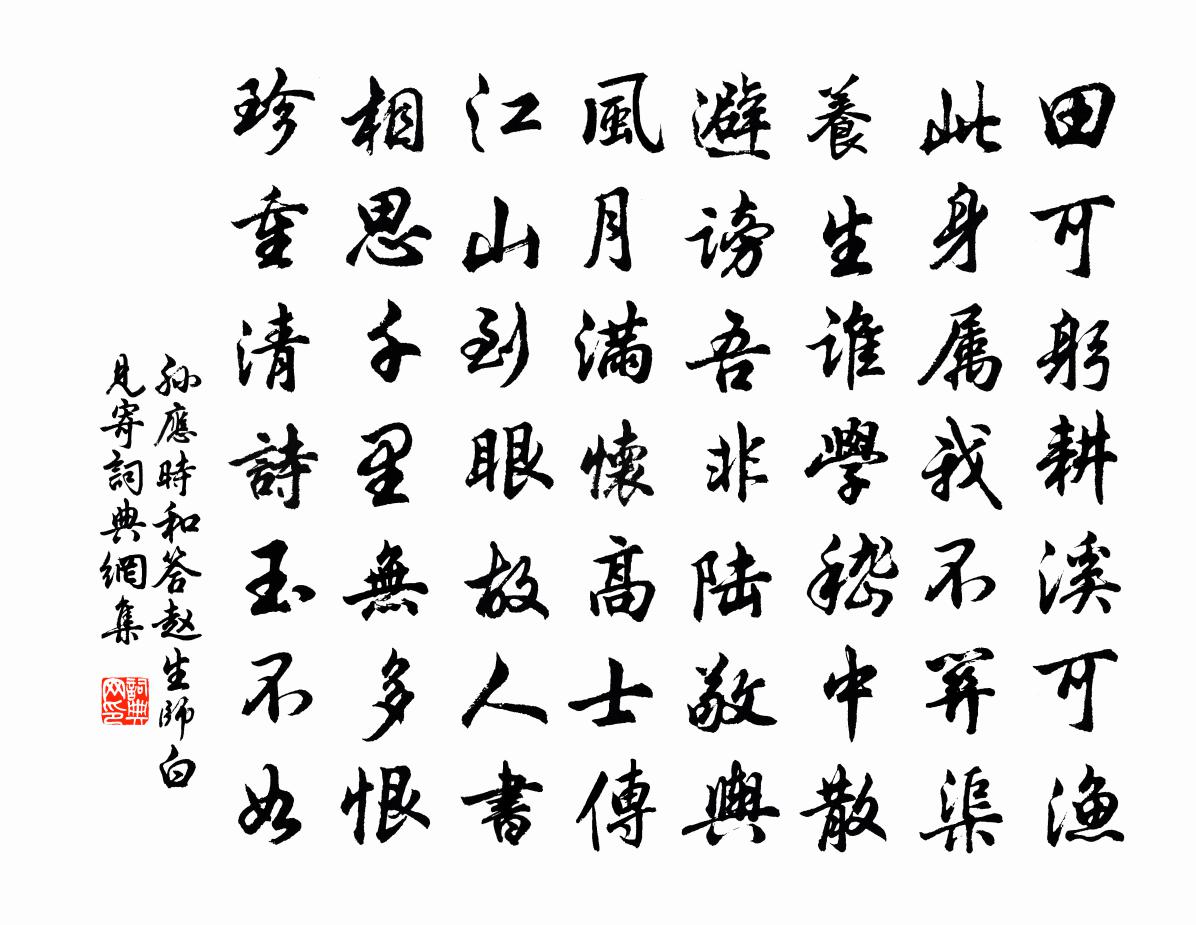 田可躬耕溪可漁
此身属我不關渠
養生誰學嵇中散
避謗吾非陆敬輿
風月滿懷高士傳
江山到眼故人書
相思千里無多恨
珍重清詩玉不如
孙應時和答赵生師白
見寄詞典網集
詞典網印